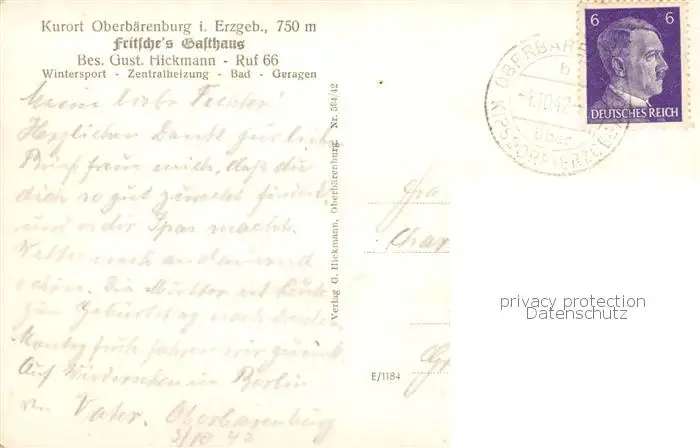 Kurort Oberbärenburg i. Erzgeb., 750 m
Fritsche's Gasthaus
Bes. Gust. Hickmann - Ruf 66
Wintersport - Zentralheizung - Bad - Garagen
Meine liebe Tochter!
Herzlichen Dank für lieb.
Brief freue mich, daß du
dich so gut zurecht findest
und es dir Spas macht.
Wetter noch andauernd
schön. Die Mutter ist heute
zum Geburtstag nach
Montag früh fahren wir zurück.
Auf Wiedersehen in Berlin
Vater. Oberbärenburg
3/10 42
Verlag G. Hickmann, Oberbärenburg. Nr. 584/42
E/1184
OBERBÄRENBURG
b
-4.10.42-
über
KIPSDORF (ERZGEB)
6 6
DEUTSCHES REICH
privacy protection
Datenschutz